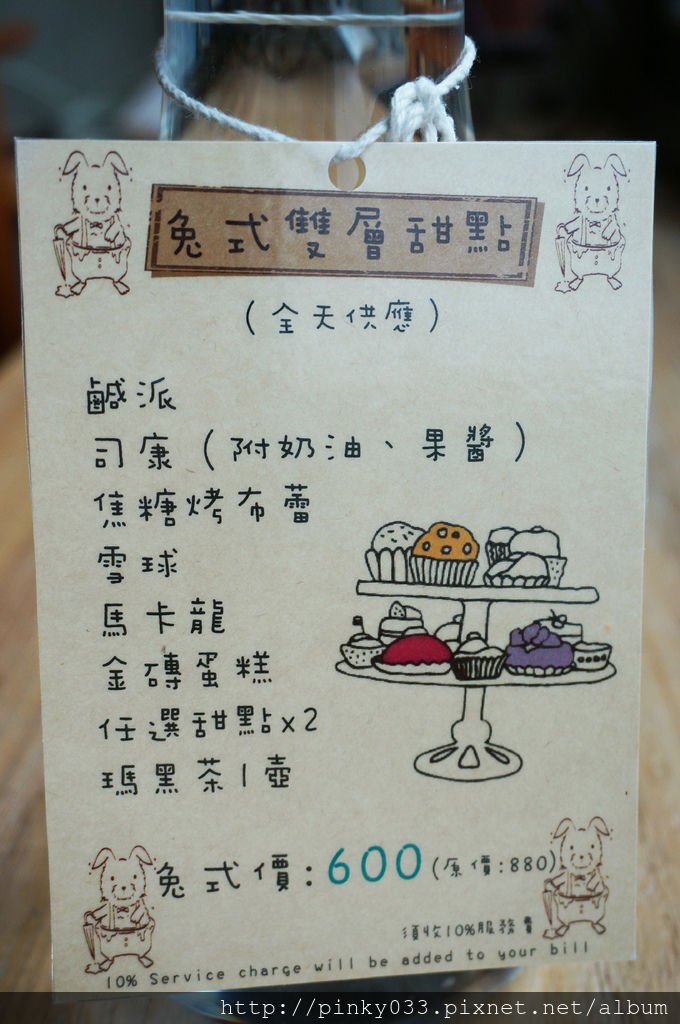 兔式雙層甜點
(全天供應)
鹹派
司康(附奶油、果醬)
焦糖烤布蕾
雪球
馬卡龍
金磚蛋糕
任選甜點x2
瑪黑茶1壺
兔式價:600(原價:880)
須收10%服務費
10% Service charge will be added to your bill
http://pinky033.pixnet.net/album